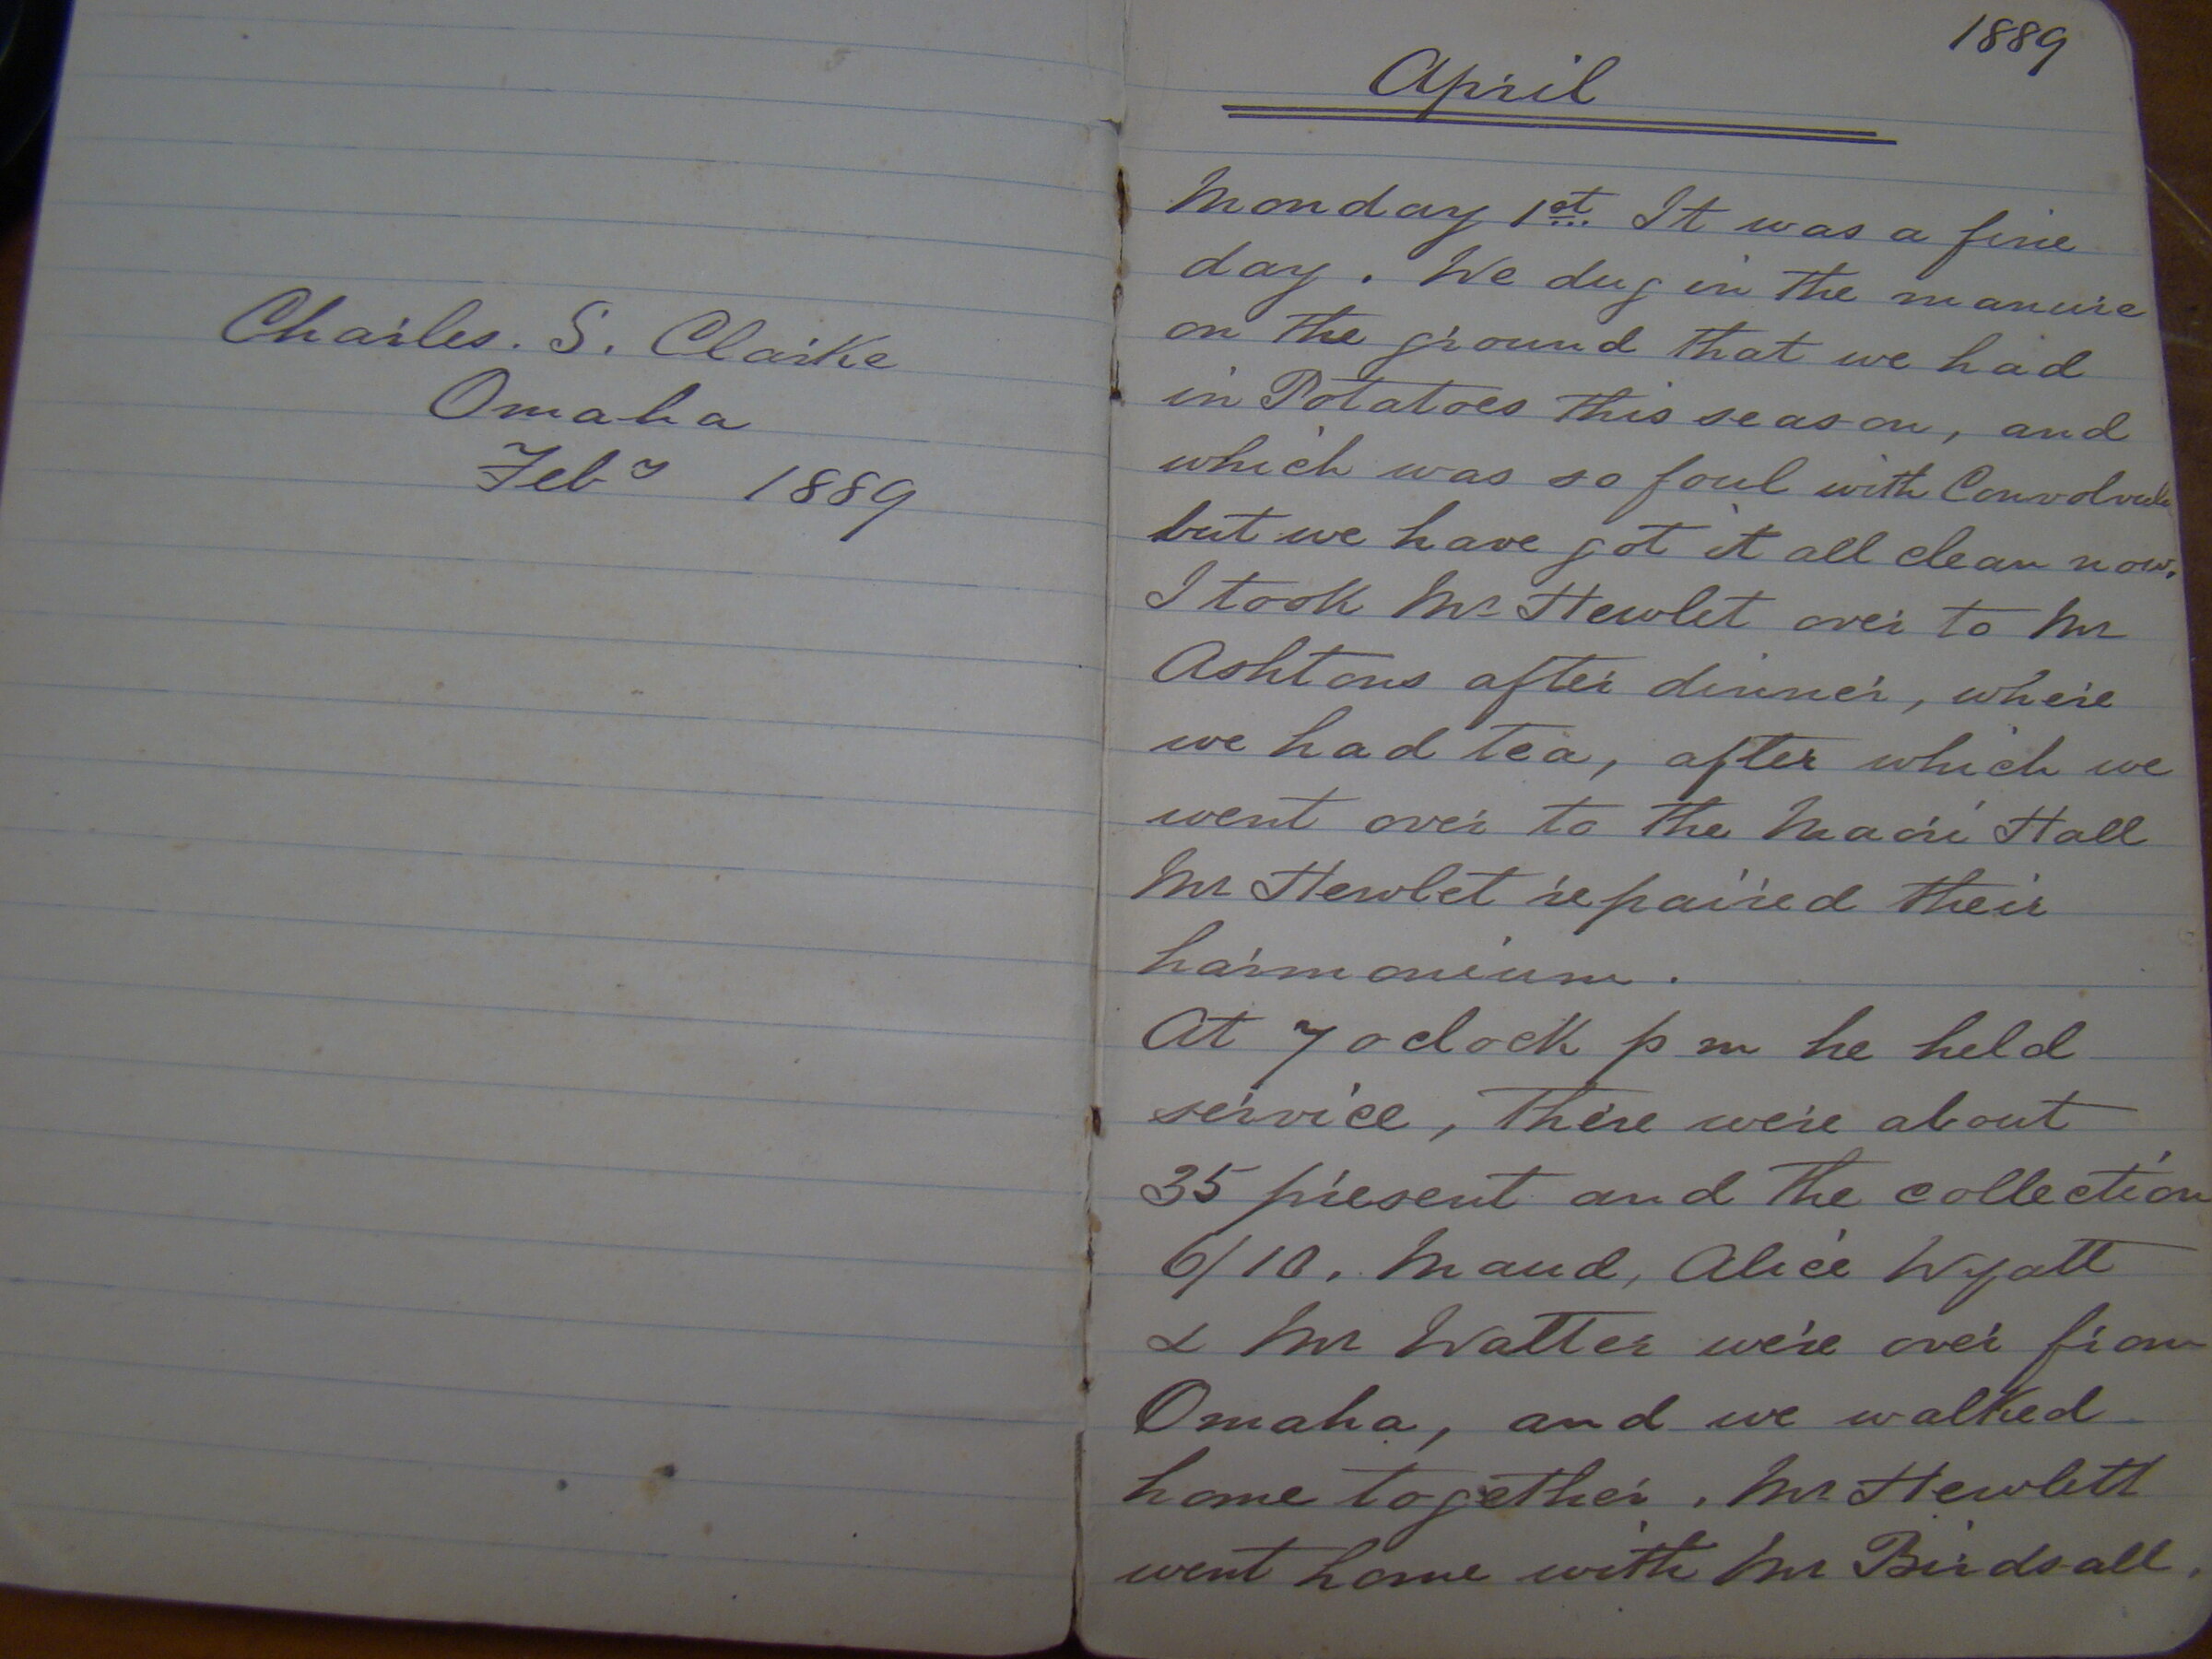 Charles. S. Clarke
Omaha
Feby 1889
1889
April
Monday 1st It was a fine
day. We dug in the manure
on the ground that we had
in Potatoes this season, and
which was so foul with Convolvulu
but we have got it all clean now.
I took Mr Hewlet over to Mr
Ashtons after dinner, where
we had tea, after which we
went over to the Maori Hall
Mr Hewlet repaired their
harmonium.
At 7 oclock p m he held
service, There were about
35 present and the collection
6/10. Maud, Alice Wyatt
& Mr Watter were over from
Omaha, and we walked
home together. Mr Hewlett
went home with Mr Birdsall.